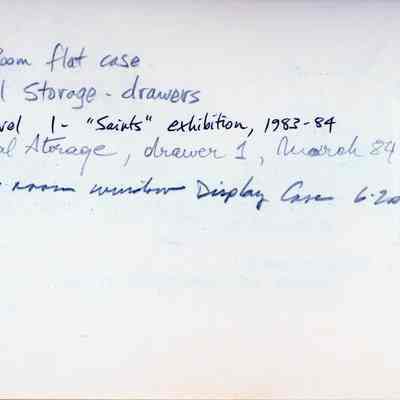 oom flat case
l Storage - drawers
vel 1 - "Saints" exhibition, 1983-84
al Storage, drawer 1, March 84
room window Display Case 6-20